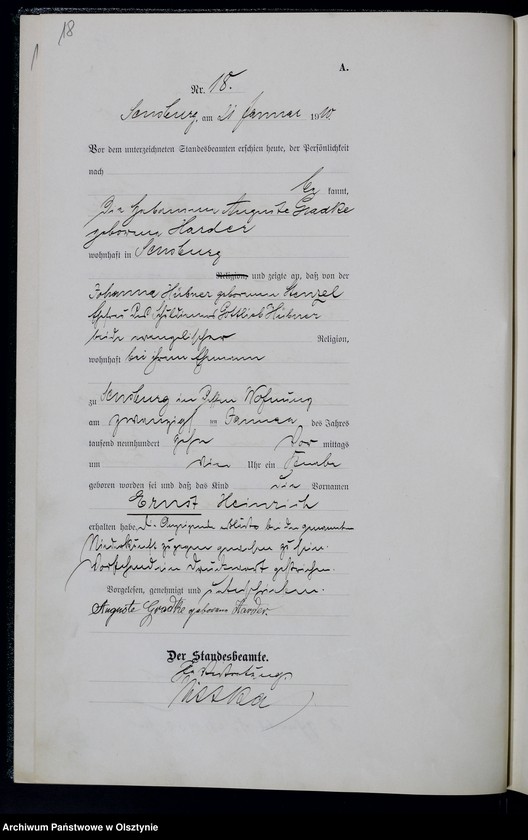 18
A.
Nr. 18.
Sensburg, am 21 Januar 1910
Vor dem unterzeichneten Standesbeamten erschien heute, der Persönlichkeit
nach
be kannt,
die Hebamme Auguste Gradke
geborene Harder
wohnhaft in Sensburg
Religion, und zeigte an, daß von der
Johanna Hübner geborenen Stenzel
Ehefrau des Gottlieb Hübner
beide evangelischer Religion,
wohnhaft bei ihrem Ehemann
zu Sensburg in dessen Wohnung
am zwanzigsten Januar des Jahres
tausend neunhundert zehn Vor mittags
um vier Uhr ein Knabe
geboren worden sei und daß das Kind die Vornamen
Ernst Heinrich
erhalten habe. Die Anzeigende bei der genannten
Niederkunft zugegen gewesen zu sein.
Vorstehend ein Druckwort gestrichen.
Vorgelesen, genehmigt und unterschrieben.
Auguste Gradke geborene Harder.
Der Standesbeamte.
In Vertretung
Archiwum Państwowe w Olsztynie